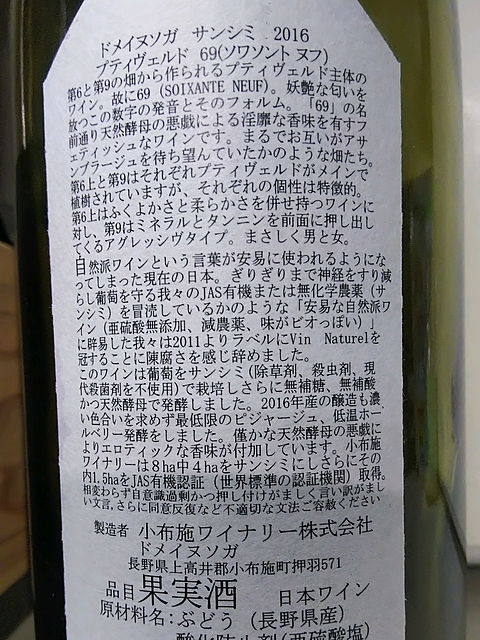 ドメイヌソガ　サンシミ　2016
プティヴェルド　69(ソワソント ヌフ)
第6と第9の畑から作られるプティヴェルド主体の
ワイン。故に69 (SOIXANTE NEUF)。妖艶な匂いを
放つこの数字の発音とそのフォルム。「69」の名
前通り天然酵母の悪戯による淫靡な香味を有すフ
ェティッシュなワインです。まるでお互いがアサ
ンブラージュを待ち望んていたかのような畑たち。
第6上と第9はそれぞれプティヴェルドがメインで
植樹されていますが、それぞれの個性は特徴的。
第6上はふくよかさと柔らかさを併せ持つワインに
対し、第9はミネラルとタンニンを前面に押し出し
てくるアグレッシヴタイプ。まさしく男と女。
自然派ワインという言葉が安易に使われるようにな
ってしまった現在の日本。ぎりぎりまで神経をすり減
らし葡萄を守る我々のJAS有機または無化学農薬（サ
ンシミ）を冒涜しているかのような「安易な自然派ワ
イン（亜硫酸無添加、減農薬、味がビオっぽい）」
に辟易した我々は2011よりラベルにVin　Naturelを
冠することに陳腐さを感じ辞めました。
このワインは葡萄をサンシミ(除草剤、殺虫剤、現
代殺菌剤を不使用)で栽培しさらに無補糖、無補酸
かつ天然酵母で発酵しました。2016年産の醸造も濃
い色合いを求めず最低限のピジャージュ、低温ホー
ルベリー発酵をしました。僅かな天然酵母の悪戯に
よりエロティックな香味が付加しています。小布施
ワイナリーは８ha中４haをサンシミにしさらにその
内1.5haをJAS有機認証（世界標準の認証機関）取得。
相変わらず自意識過剰かつ押し付けがましく言い訳がまし
い文言,さらに同意反復など不適切な文法ご容赦ください
製造者　小布施ワイナリー株式会社
ドメイヌソガ
長野県上高井郡小布施町押羽571
品目 果実酒　日本ワイン
原材料名：ぶどう（長野県産）
酸化防止剤(亜硫酸塩)